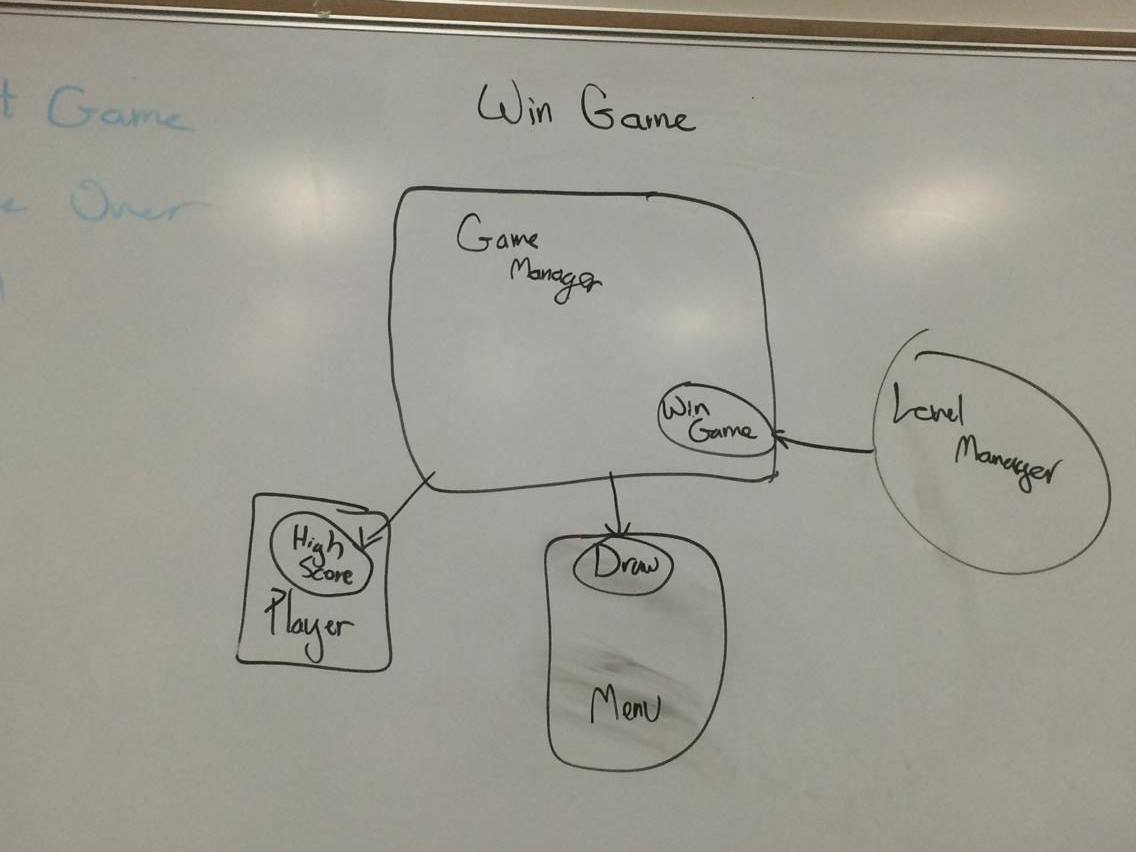 Win Game
t Game
e Over
Game
Manager
Win
Game
Level
Manager
High
Score
Player
Draw
Menu